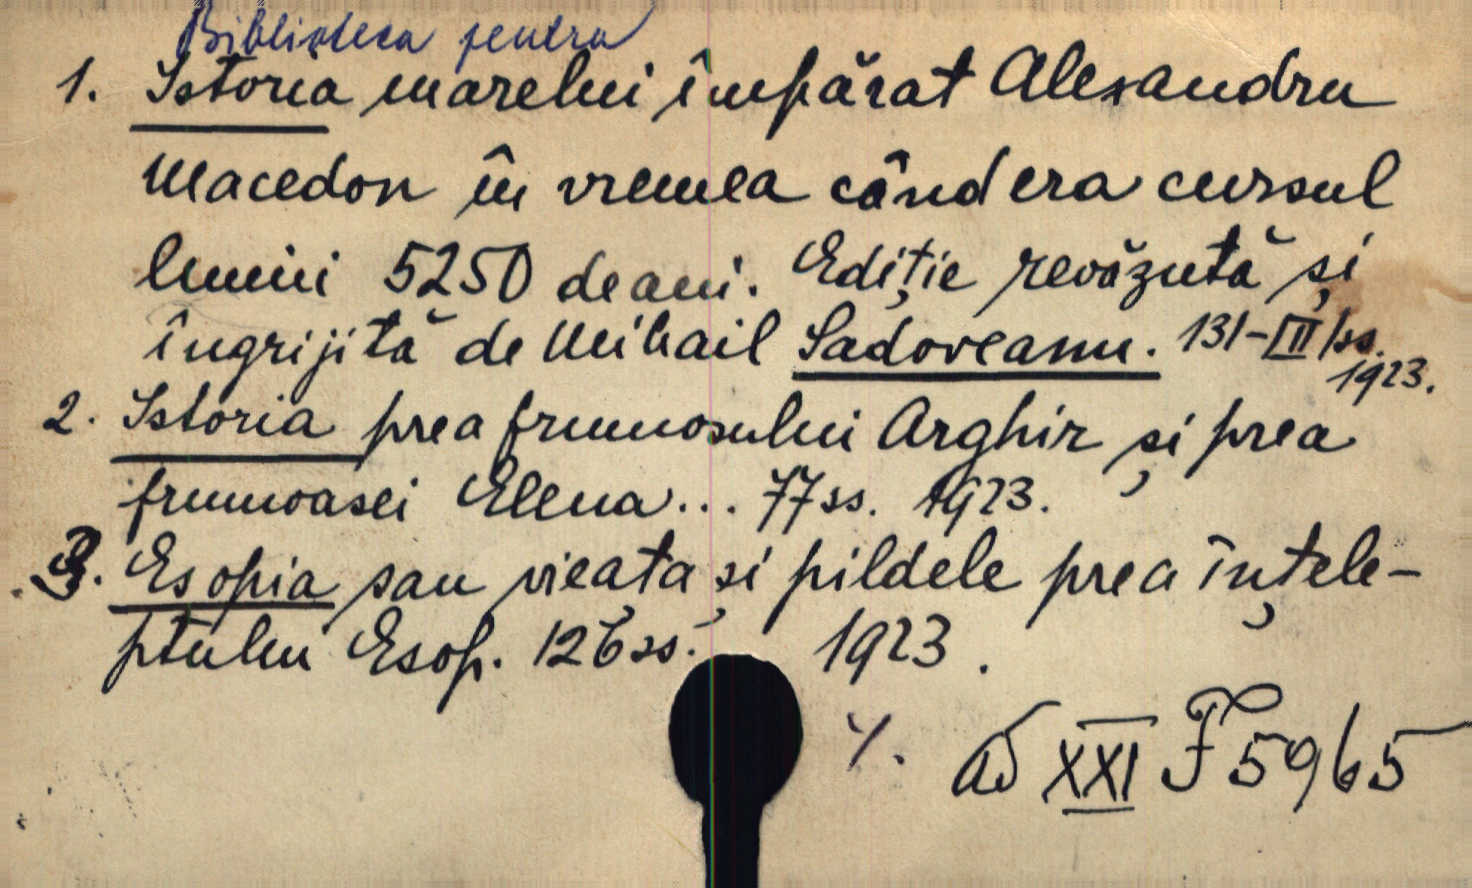 Biblioteca pentru
1. Istoria marelui împărat Alexandru
Macedon în vremea când era cursul
lumii 5250 de ani. Ediție revăzută și
îngrijită de Mihail Sadoveanu. 131-III ss.
1923.
2. Istoria prea frumosului Arghir și prea
frumoasei Elena... 77 ss. 1923.
3. Esopia sau vieața și pildele prea înțele-
ptului Esop. 126 ss. 1923.
ad XXI F 5965